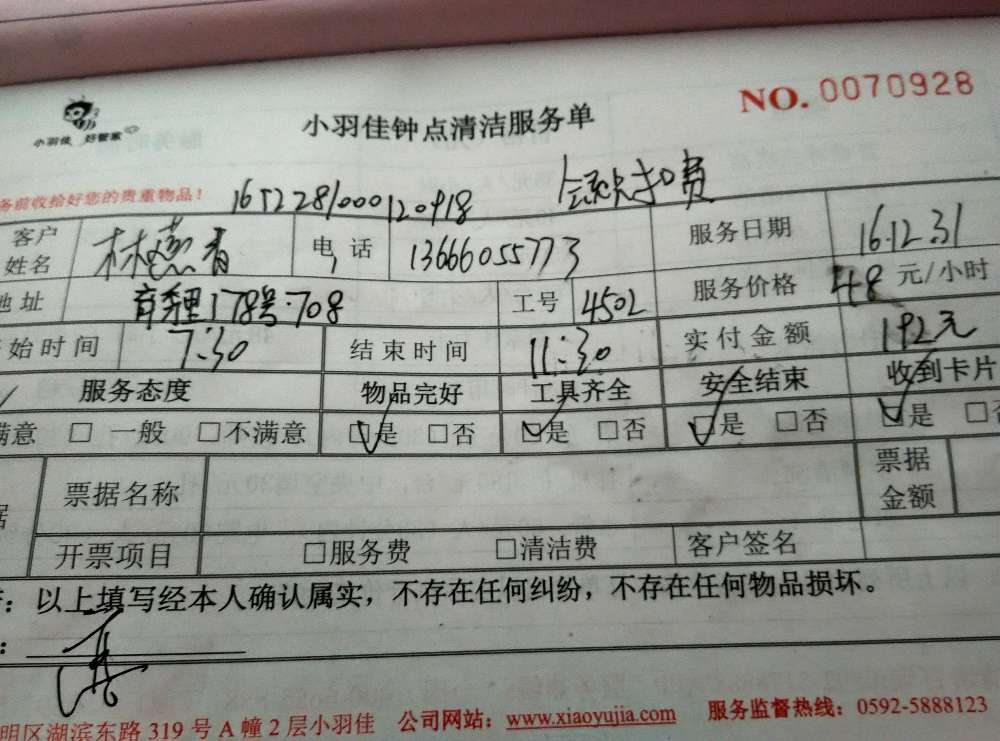 NO. 0070928
小羽佳 好管家
小羽佳钟点清洁服务单
务前收拾好您的贵重物品！
1652281000120918 会员卡扣费
客户姓名 林燕香 电话 13666055773 服务日期 16.12.31
地址 178号.708 工号 4502 服务价格 48 元/小时
始时间 7:30 结束时间 11:30 实付金额 192元
服务态度 物品完好 工具齐全 安全结束 收到卡片
满意 □ 一般 □不满意 □是 □否 □是 □否 □是 □否 □是 □否
票据名称 票据金额
开票项目 □服务费 □清洁费 客户签名
：以上填写经本人确认属实，不存在任何纠纷，不存在任何物品损坏。
明区湖滨东路 319 号 A 幢 2 层小羽佳 公司网站：www.xiaoyujia.com 服务监督热线：0592-5888123